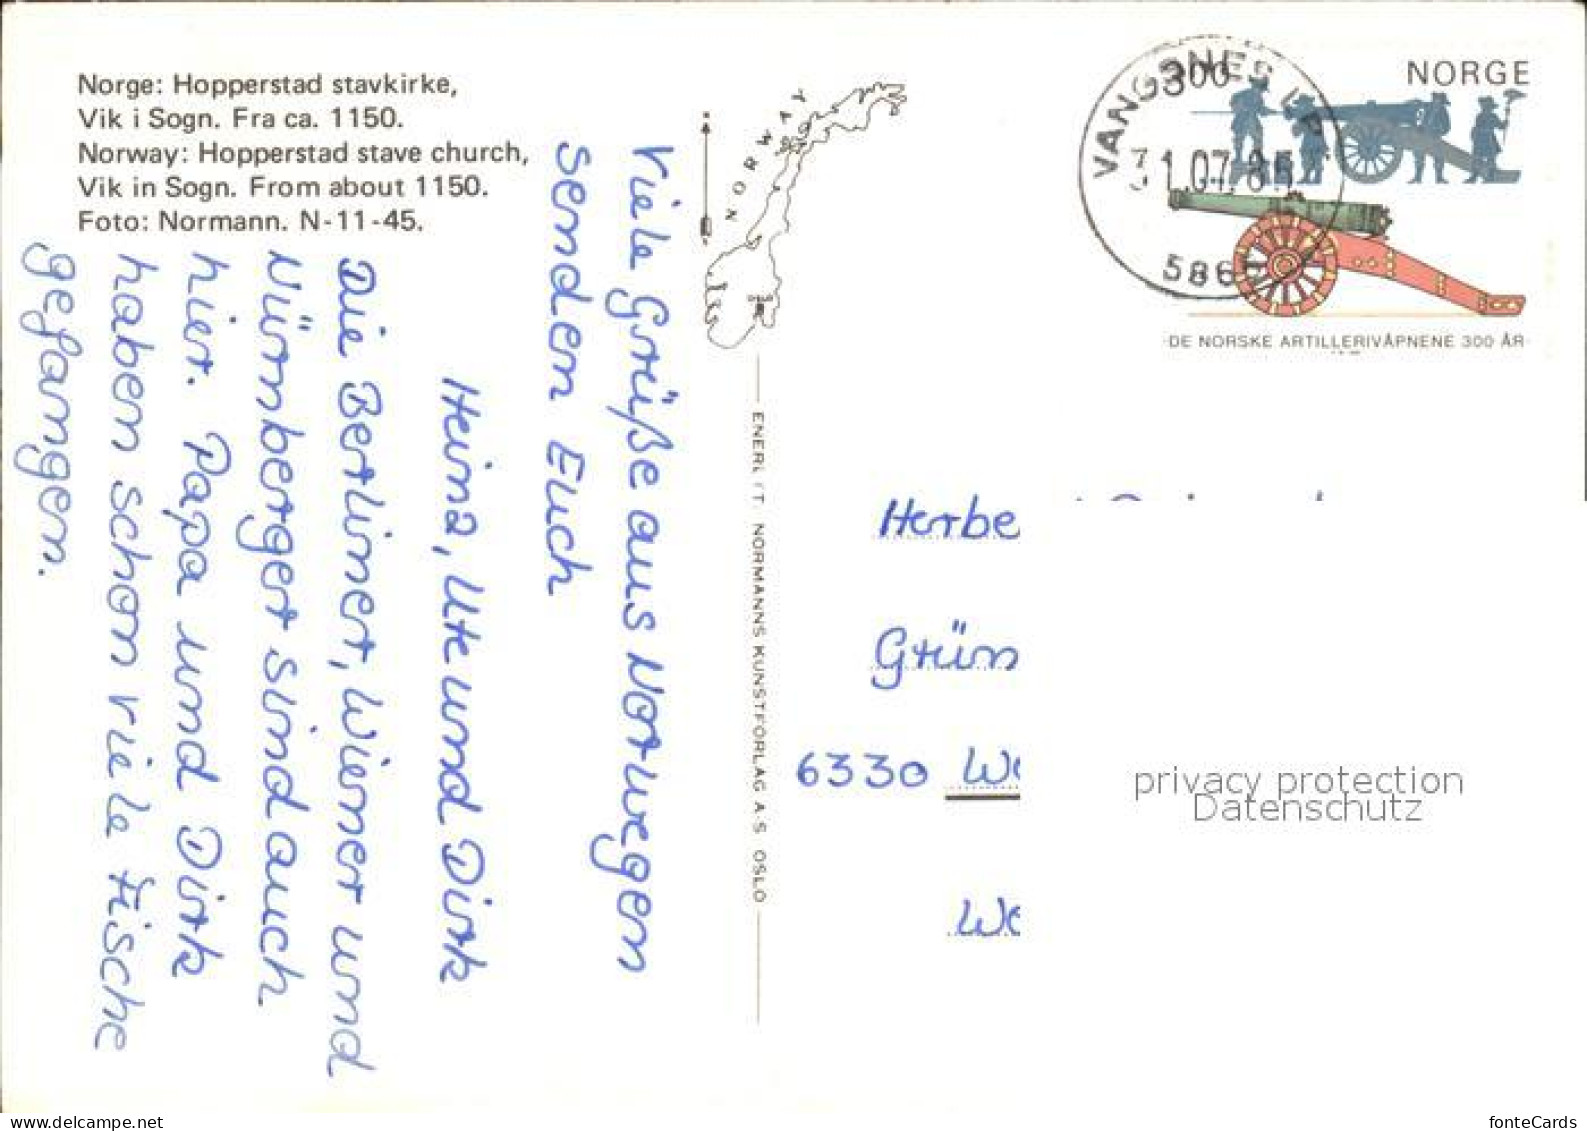 Norge: Hopperstad stavkirke,
Vik i Sogn. Fra ca. 1150.
Norway: Hopperstad stave church,
Vik in Sogn. From about 1150.
Foto: Normann. N-11-45.
Viele Grüße aus Norwegen
senden Euch
Heinz, Ute und Dirk
Die Berliner, Wiener und
Nürnberger sind auch
hier. Papa und Dirk
haben schon viele Fische
gefangen.
NORWAY
ENERETT. NORMANNS KUNSTFORLAG A-S OSLO
300
NORGE
VANGSNES
31.07.85
586
DE NORSKE ARTILLERIVÅPNENE 300 ÅR
Herbe
Grün
6330 We
We
privacy protection
Datenschutz
www.delcampe.net
fonteCards